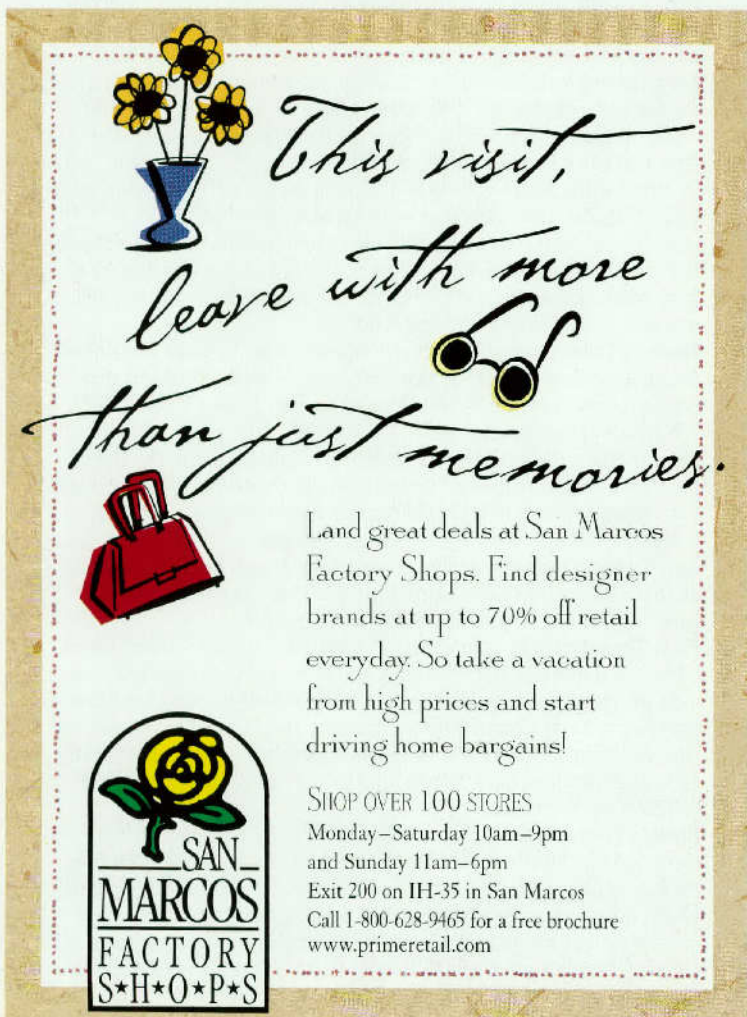 This visit,
leave with more
than just memories.
Land great deals at San Marcos
Factory Shops. Find designer
brands at up to 70% off retail
everyday. So take a vacation
from high prices and start
driving home bargains!
SHOP OVER 100 STORES
Monday–Saturday 10am–9pm
and Sunday 11am–6pm
Exit 200 on IH-35 in San Marcos
Call 1-800-628-9465 for a free brochure
www.primeretail.com
SAN
MARCOS
FACTORY
S★H★O★P★S